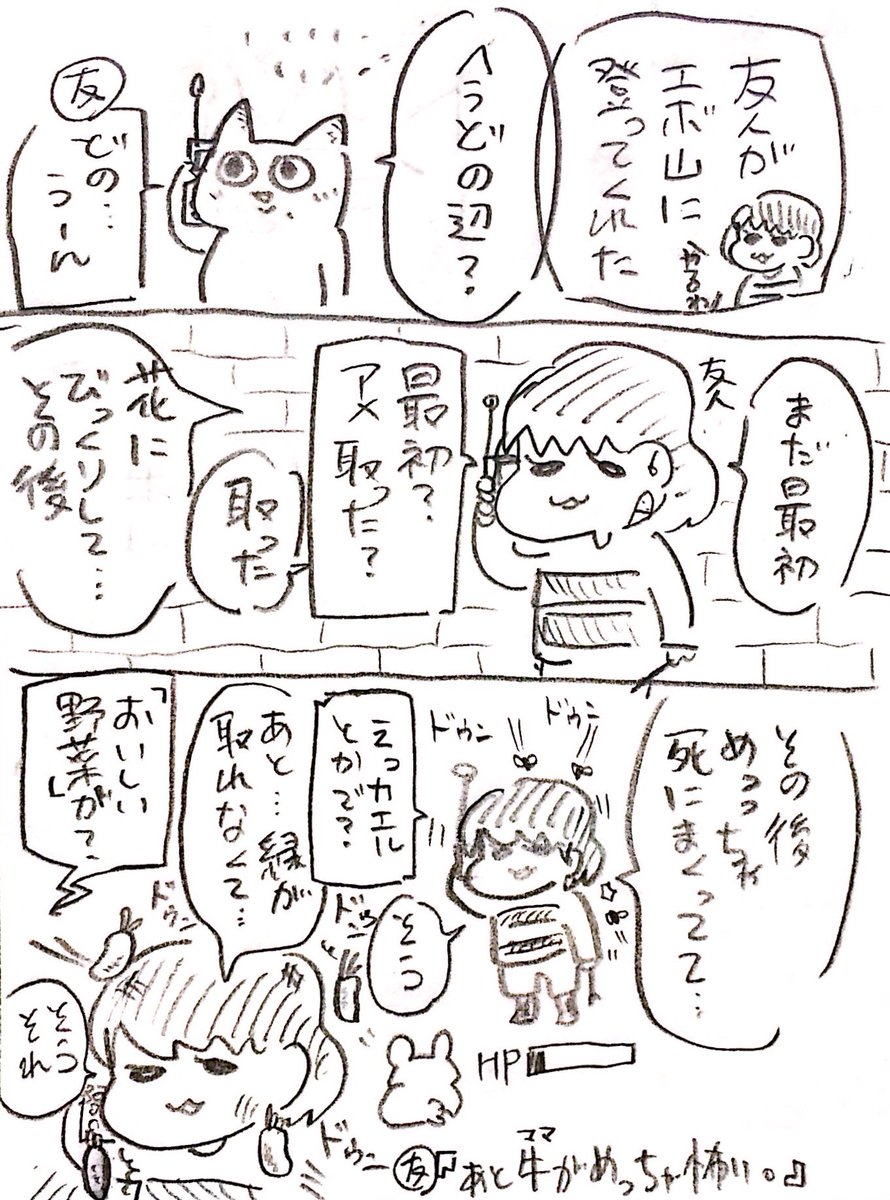 友人が
エボ山に
登ってくれた
かるわ!
今うどの辺?
友
どの…
うーん
まだ最初
友人
最初?
アメ取った?
取った
花に
びっくりして…
その後
その後
めっちゃ
死にまくってて…
ドゥン
ドゥン
えっカエル
とかで?
そう
あと…縁が
取れなくて…
ドゥン
「おいしい
野菜が?」
ドゥン
そう
それ
ドゥン
HP
友『あと牛がめっちゃ怖い。』
ママ